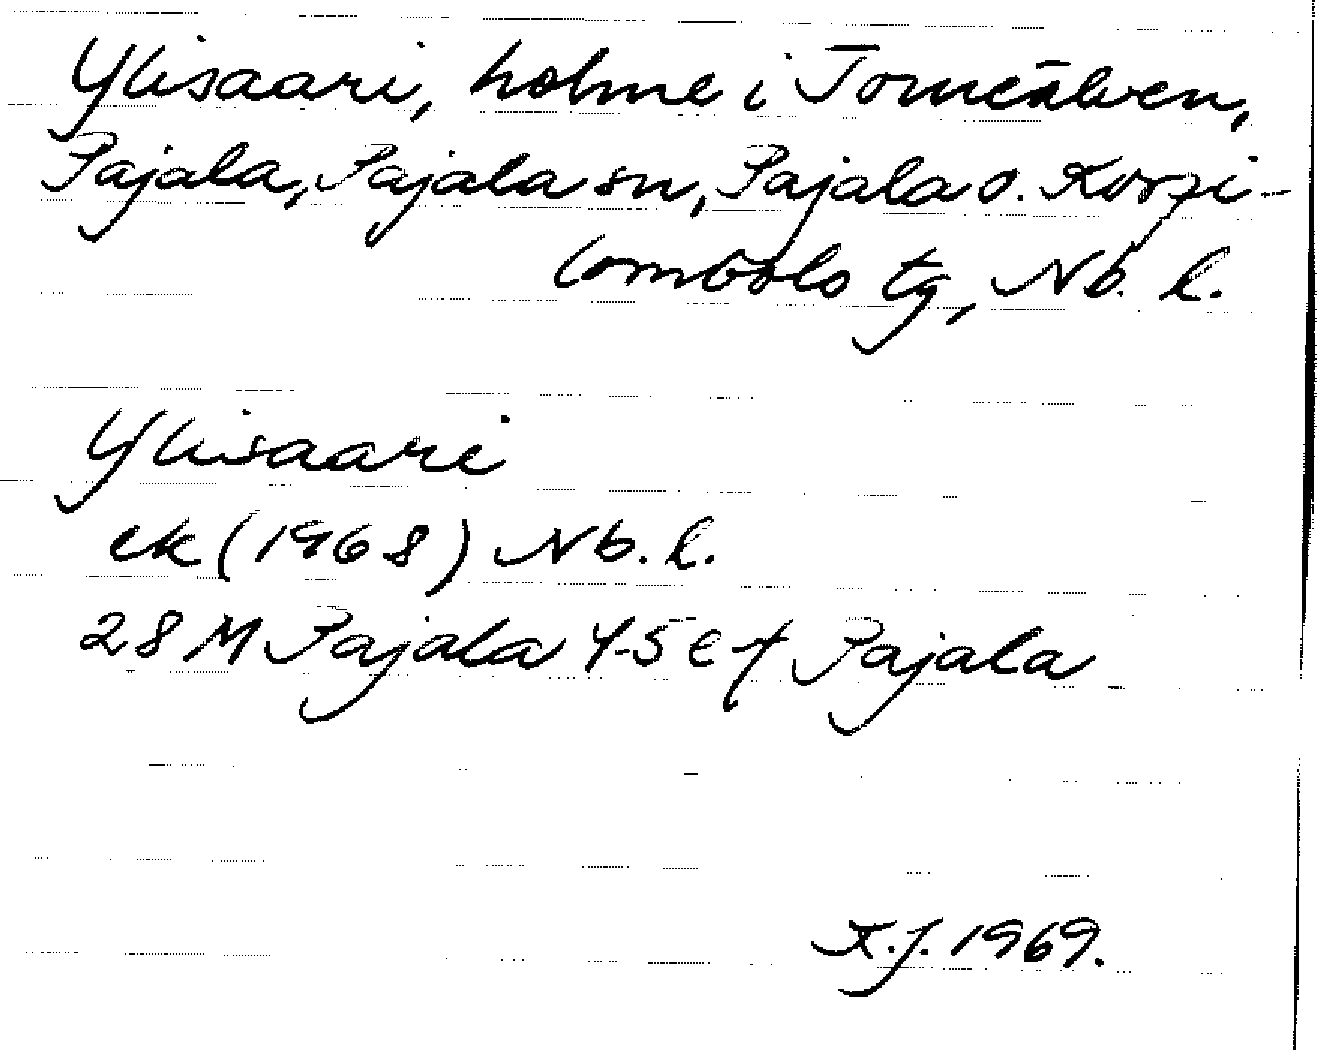 Ylisaari, holme i Torneälven,
Pajala, Pajala sn, Pajala o. Korpi-
lombolo tg, Nb. l.
Ylisaari
ek (1968) Nb. l.
28 M Pajala 4-5 e f Pajala
K.J. 1969.